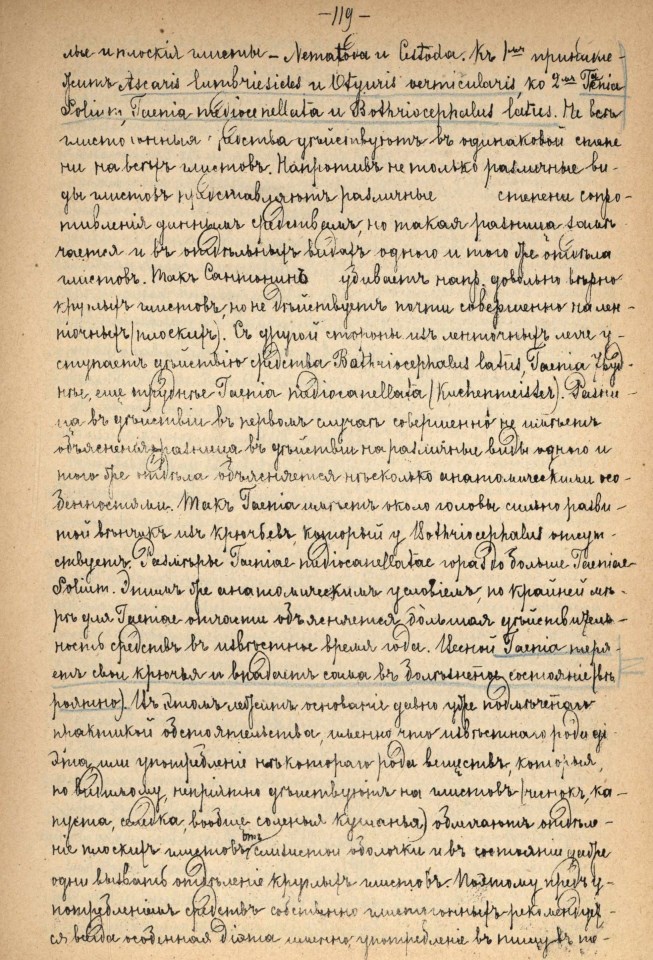 —119—
лые и плоскія глисты — Nematoda и Cestoda. Къ 1ым принадле-
житъ Ascaris lumbricoides и Oxyuris vermicularis ко 2ым Taenia
Solium, Taenia mediocanellata и Bothriocephalus latus. Не всѣ
глистогонныя средства дѣйствуютъ въ одинаковой степе
ни на всѣхъ глистовъ. Напротивъ не только различные ви-
ды глистовъ представляютъ различные степени сопро-
тивленія даннымъ средствамъ, но такая разница замѣ-
чается и въ отдѣльныхъ видахъ одного и того же отдѣла
глистовъ. Такъ Сантонинъ убиваетъ напр. довольно вѣрно
круглыхъ глистовъ, но не дѣйствуетъ почти совершенно на лен-
точныхъ (плоскихъ). Съ другой стороны изъ ленточныхъ легче у-
ступаетъ дѣйствію средства Bothriocephalus latus, Taenia труд-
нѣе, еще труднѣе Taenia mediocanellata (Kuchenmeister). Разни-
ца въ дѣйствіи въ первомъ случаѣ совершенно не имѣетъ
объясненія, разница въ дѣйствіи на различные виды одного и
того же отдѣла объясняется нѣсколько анатомическими осо-
бенностями. Такъ Taenia имѣетъ около головы сильно разви-
той вѣнчикъ изъ крючьевъ, который у Bothriocephalus отсут-
ствуетъ. Размѣры Taeniae mediocanellatae гораздо больше Taeniae
Solium. Этимъ же анатомическимъ условіемъ, по крайней мѣ-
рѣ для Taeniae отчасти объясняется бо́льшая дѣйствитель-
ность средствъ въ извѣстное время года. Весной Taenia теря-
етъ свои крючья и впадаетъ сама въ болѣзненное состояніе (вѣ-
роятно). Въ этомъ лежитъ основаніе давно уже подмѣченнаго
практикой обстоятельства, именно что извѣстнаго рода ді-
эта, или употребленіе нѣкотораго рода веществъ, которыя,
по видимому, непріятно дѣйствуютъ на глистовъ (чеснокъ, ка-
пуста, селедка, вообще соленыя кушанья) облегчаютъ отдѣле-
ніе плоскихъ глистовъ отъ слизистой оболочки и въ состояніи даже
одни вызвать отдѣленіе круглыхъ глистовъ. Поэтому предъ у-
потребленіемъ средствъ собственно глистогонныхъ рекомендует-
ся всегда особенная діэта именно, употребленіе въ пищу въ те-